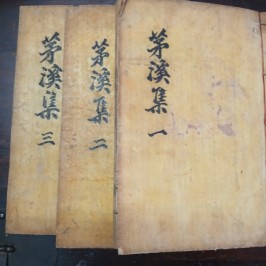 茅溪集 一
茅溪集 二
茅溪集 三